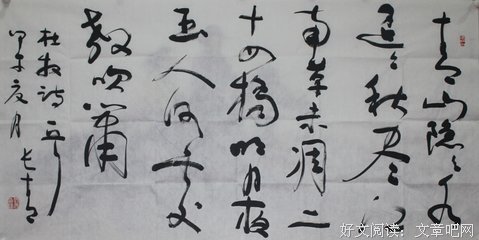 青山隐々水
迢々秋尽江
南草未凋二
十四橋明月夜
玉人何处
教吹箫
杜牧诗一首
甲午夏月
好文阅读：文章吧网